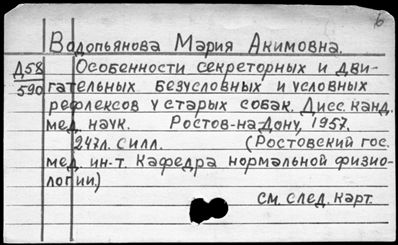 6
Водопьянова Мария Акимовна.
Д58 Особенности секреторных и дви-
590 гательных безусловных и условных
рефлексов у старых собак. Дисс. канд.
мед. наук. Ростов-на-Дону, 1957.
247л. с илл. (Ростовский гос.
мед. ин-т. Кафедра нормальной физио-
логии.)
см. след. карт.